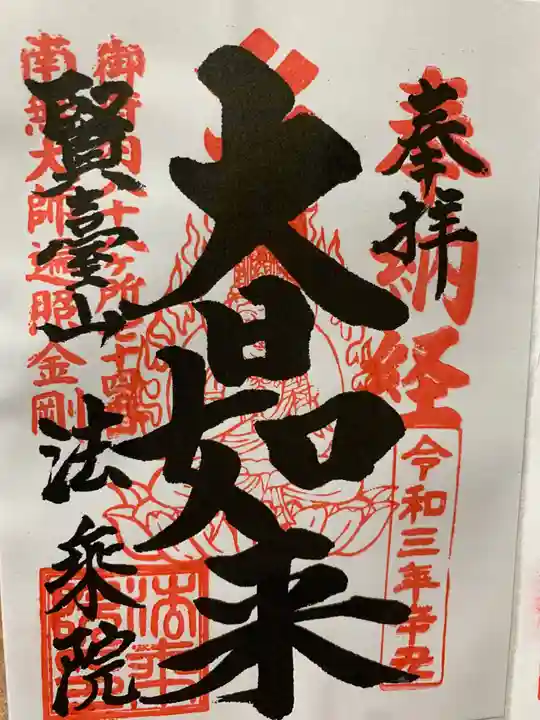 奉拝
奉納経
令和三年辛丑
大日如来
御府内八十八ヶ所三十四番
南無大師遍照金剛
賢臺山
法乗院